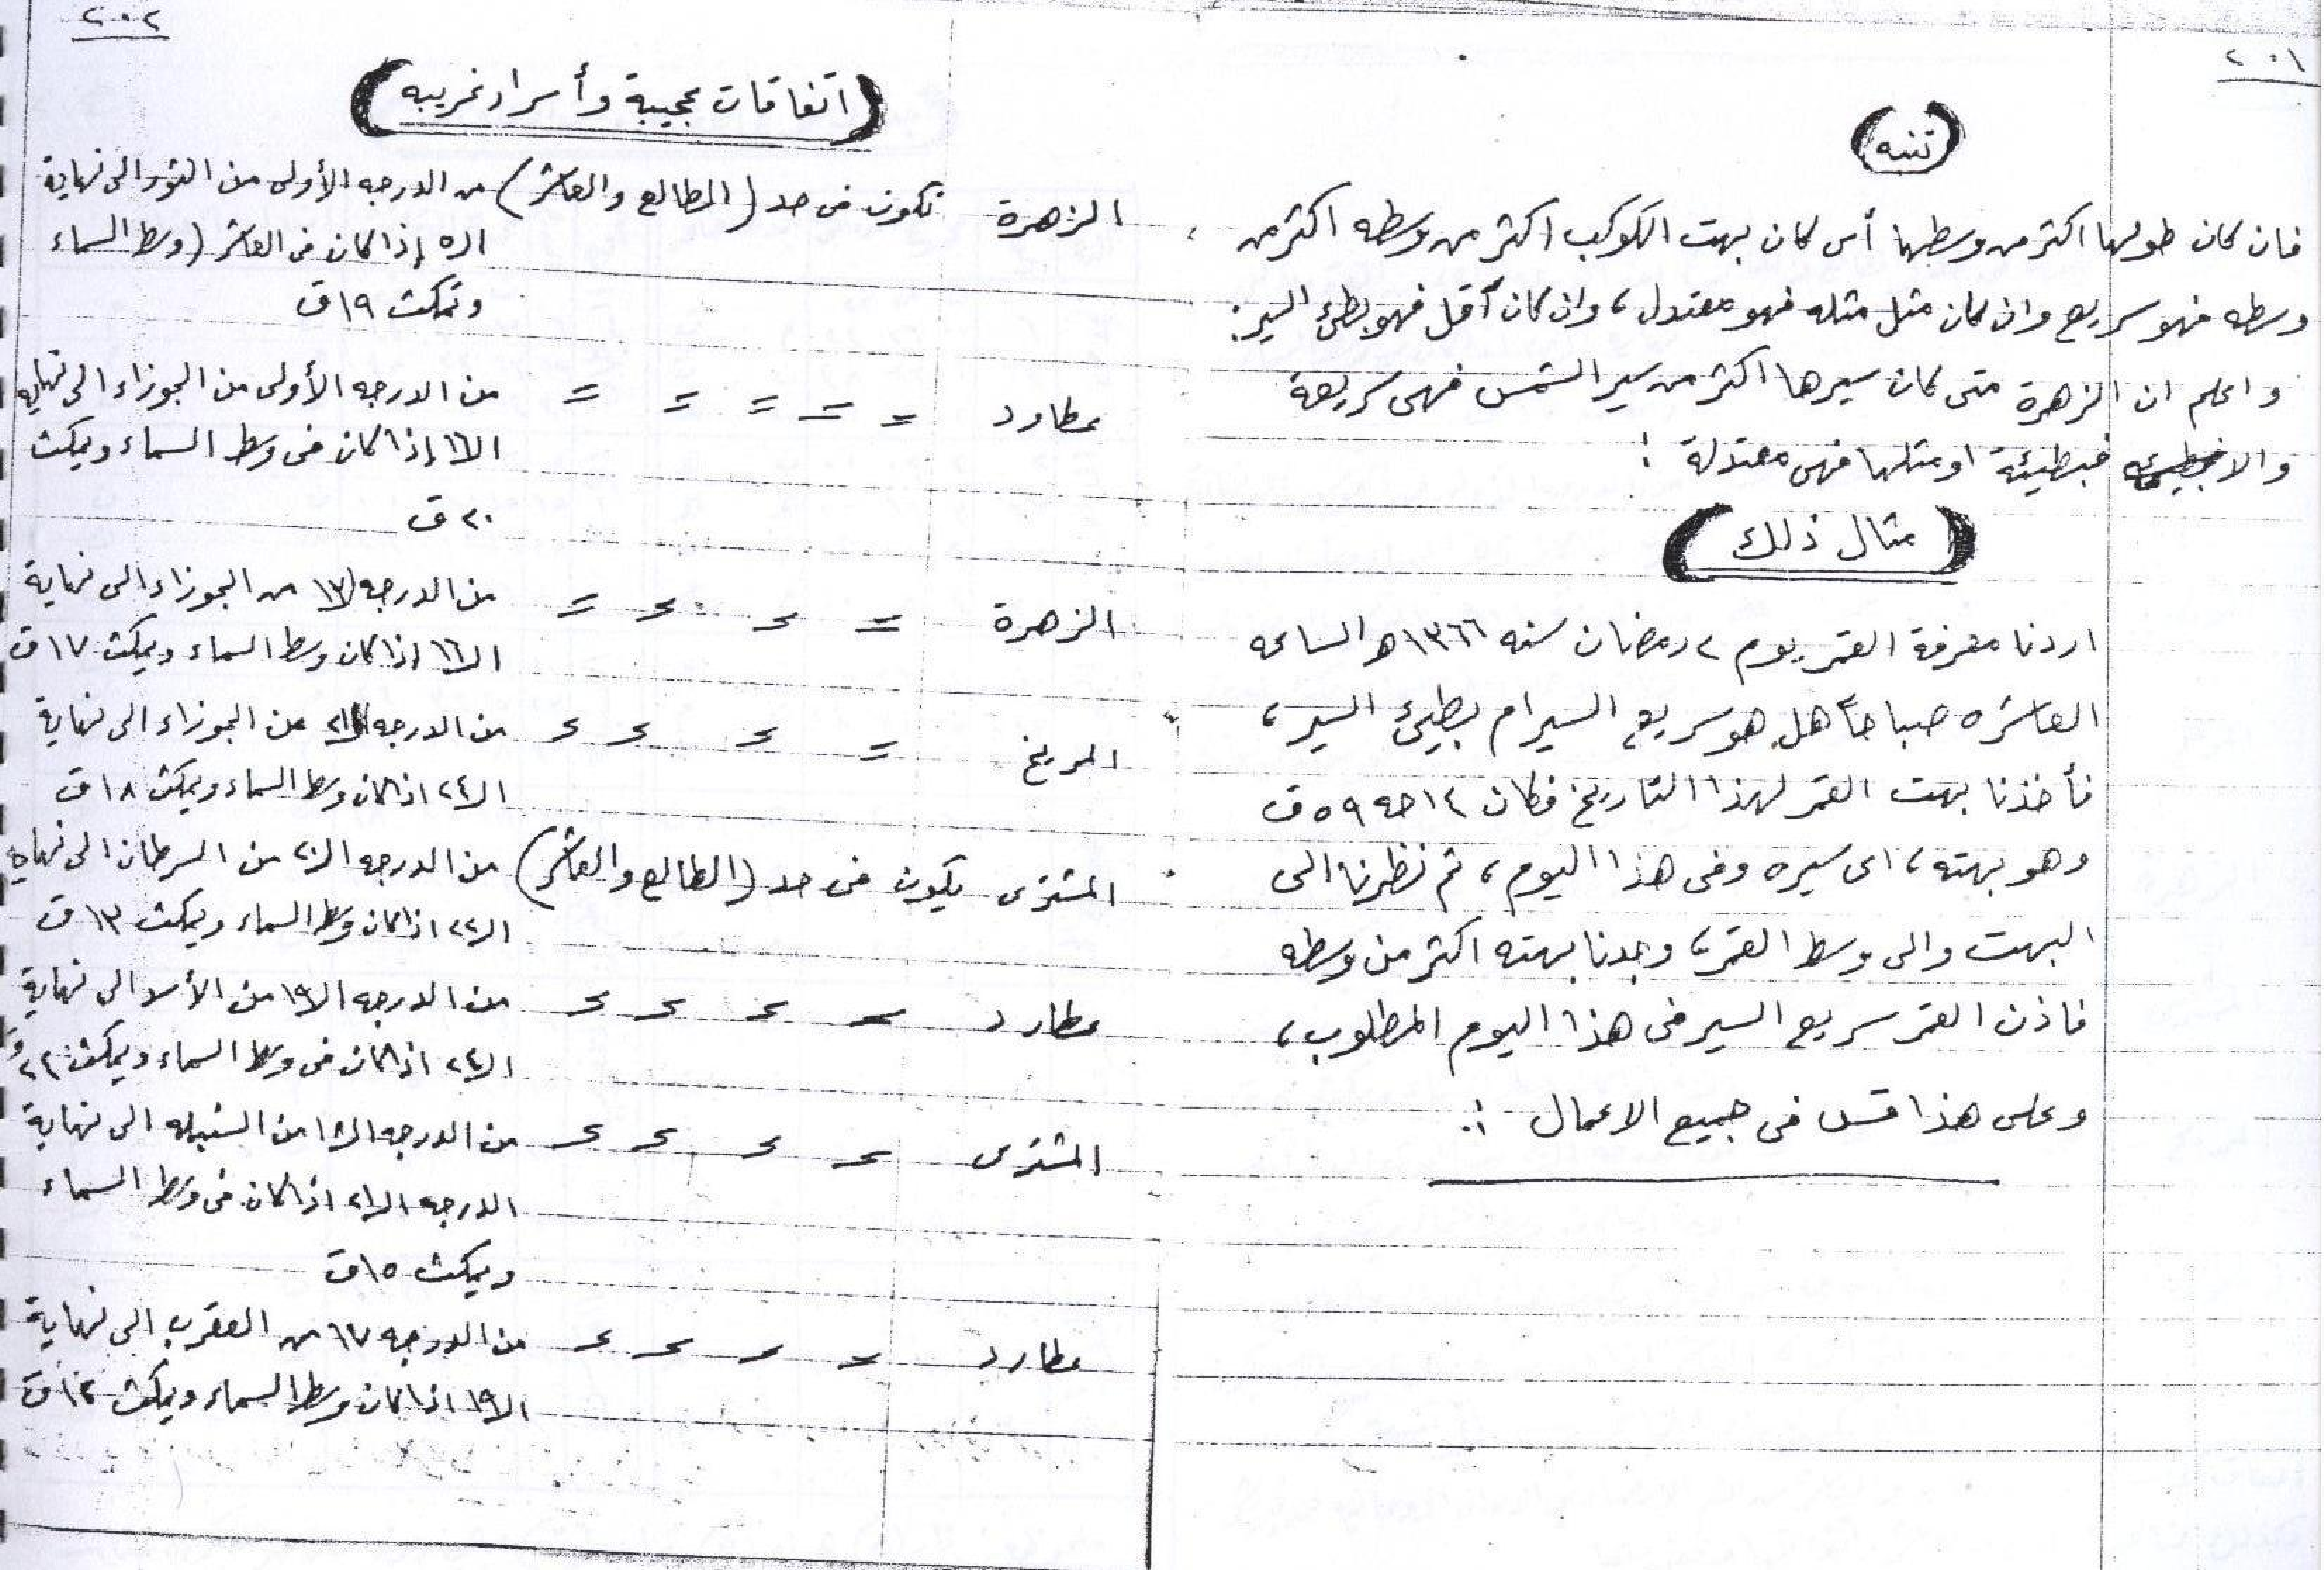 ٢٠١
(تنبه)
فان كان طولها اكثر من وسطها أى كان بهت الكوكب اكثر من وسطه اكثر من
وسطه فهو سريع وان كان مثل مثله فهو معتدل، وان كان أقل فهو بطئ السير:
واعلم ان الزهرة متى كان سيرها اكثر من سير الشمس فهى سريعة
والا فبطيئة او مثلها فهى معتدلة :
(مثال ذلك)
اردنا معرفة القمر يوم ٢ رمضان سنه ١٣٦٦ هـ الساعه
العاشره صباحاً هل هو سريع السير ام بطيئ السير،
فأخذنا بهت القمر لهذا التاريخ فكان ١٤ حه ٥٩ ق
وهو بهته، اى سيره وفى هذا اليوم، ثم نظرنا الى
البهت والى وسط القمر، وجدنا بهته اكثر من وسطه
فاذن القمر سريع السير فى هذا اليوم المطلوب،
وعلى هذا قس فى جميع الاعمال :.
٢٠٢
(اتفاقات عجيبة وأسرار غريبه)
الزهرة تكون فى حد (المطالع والعاشر) من الدرجه الأولى من الثور الى نهاية
الـ٥ إذا كان فى العاشر (وسط السماء
وتمكث ١٩ ق
عطارد = = = = = من الدرجه الأولى من الجوزاء الى نهايه
الـ١٦ إذا كان فى وسط السماء ويمكث
٢٠ ق
الزهرة = = = = من الدرجه الـ١٣ من الجوزاء الى نهاية
الـ١٦ اذا كان وسط السماء ويمكث ١٧ ق
المريخ = = = = من الدرجه من الجوزاء الى نهاية
الـ٢٤ اذا كان وسط السماء ويمكث ١٨ ق
المشترى يكون فى حد (الطالع والعاشر) من الدرجه الـ٢٠ من السرطان الى نهاية
الـ٢٢ اذا كان وسط السماء ويمكث ١٣ ق
عطارد = = = = من الدرجه الـ١٩ من الأسد الى نهاية
الـ٢٤ اذا كان فى وسط السماء ويمكث ٢١ ق
المشترى = = = = من الدرجه من السنبله الى نهاية
الدرجه الـ٢١ اذا كان فى وسط السماء
ويمكث ١٥ ق
عطارد = = = = من الدرجه ١٧ من العقرب الى نهاية
الـ١٩ اذا كان وسط السماء ويمكث ١٢ ق